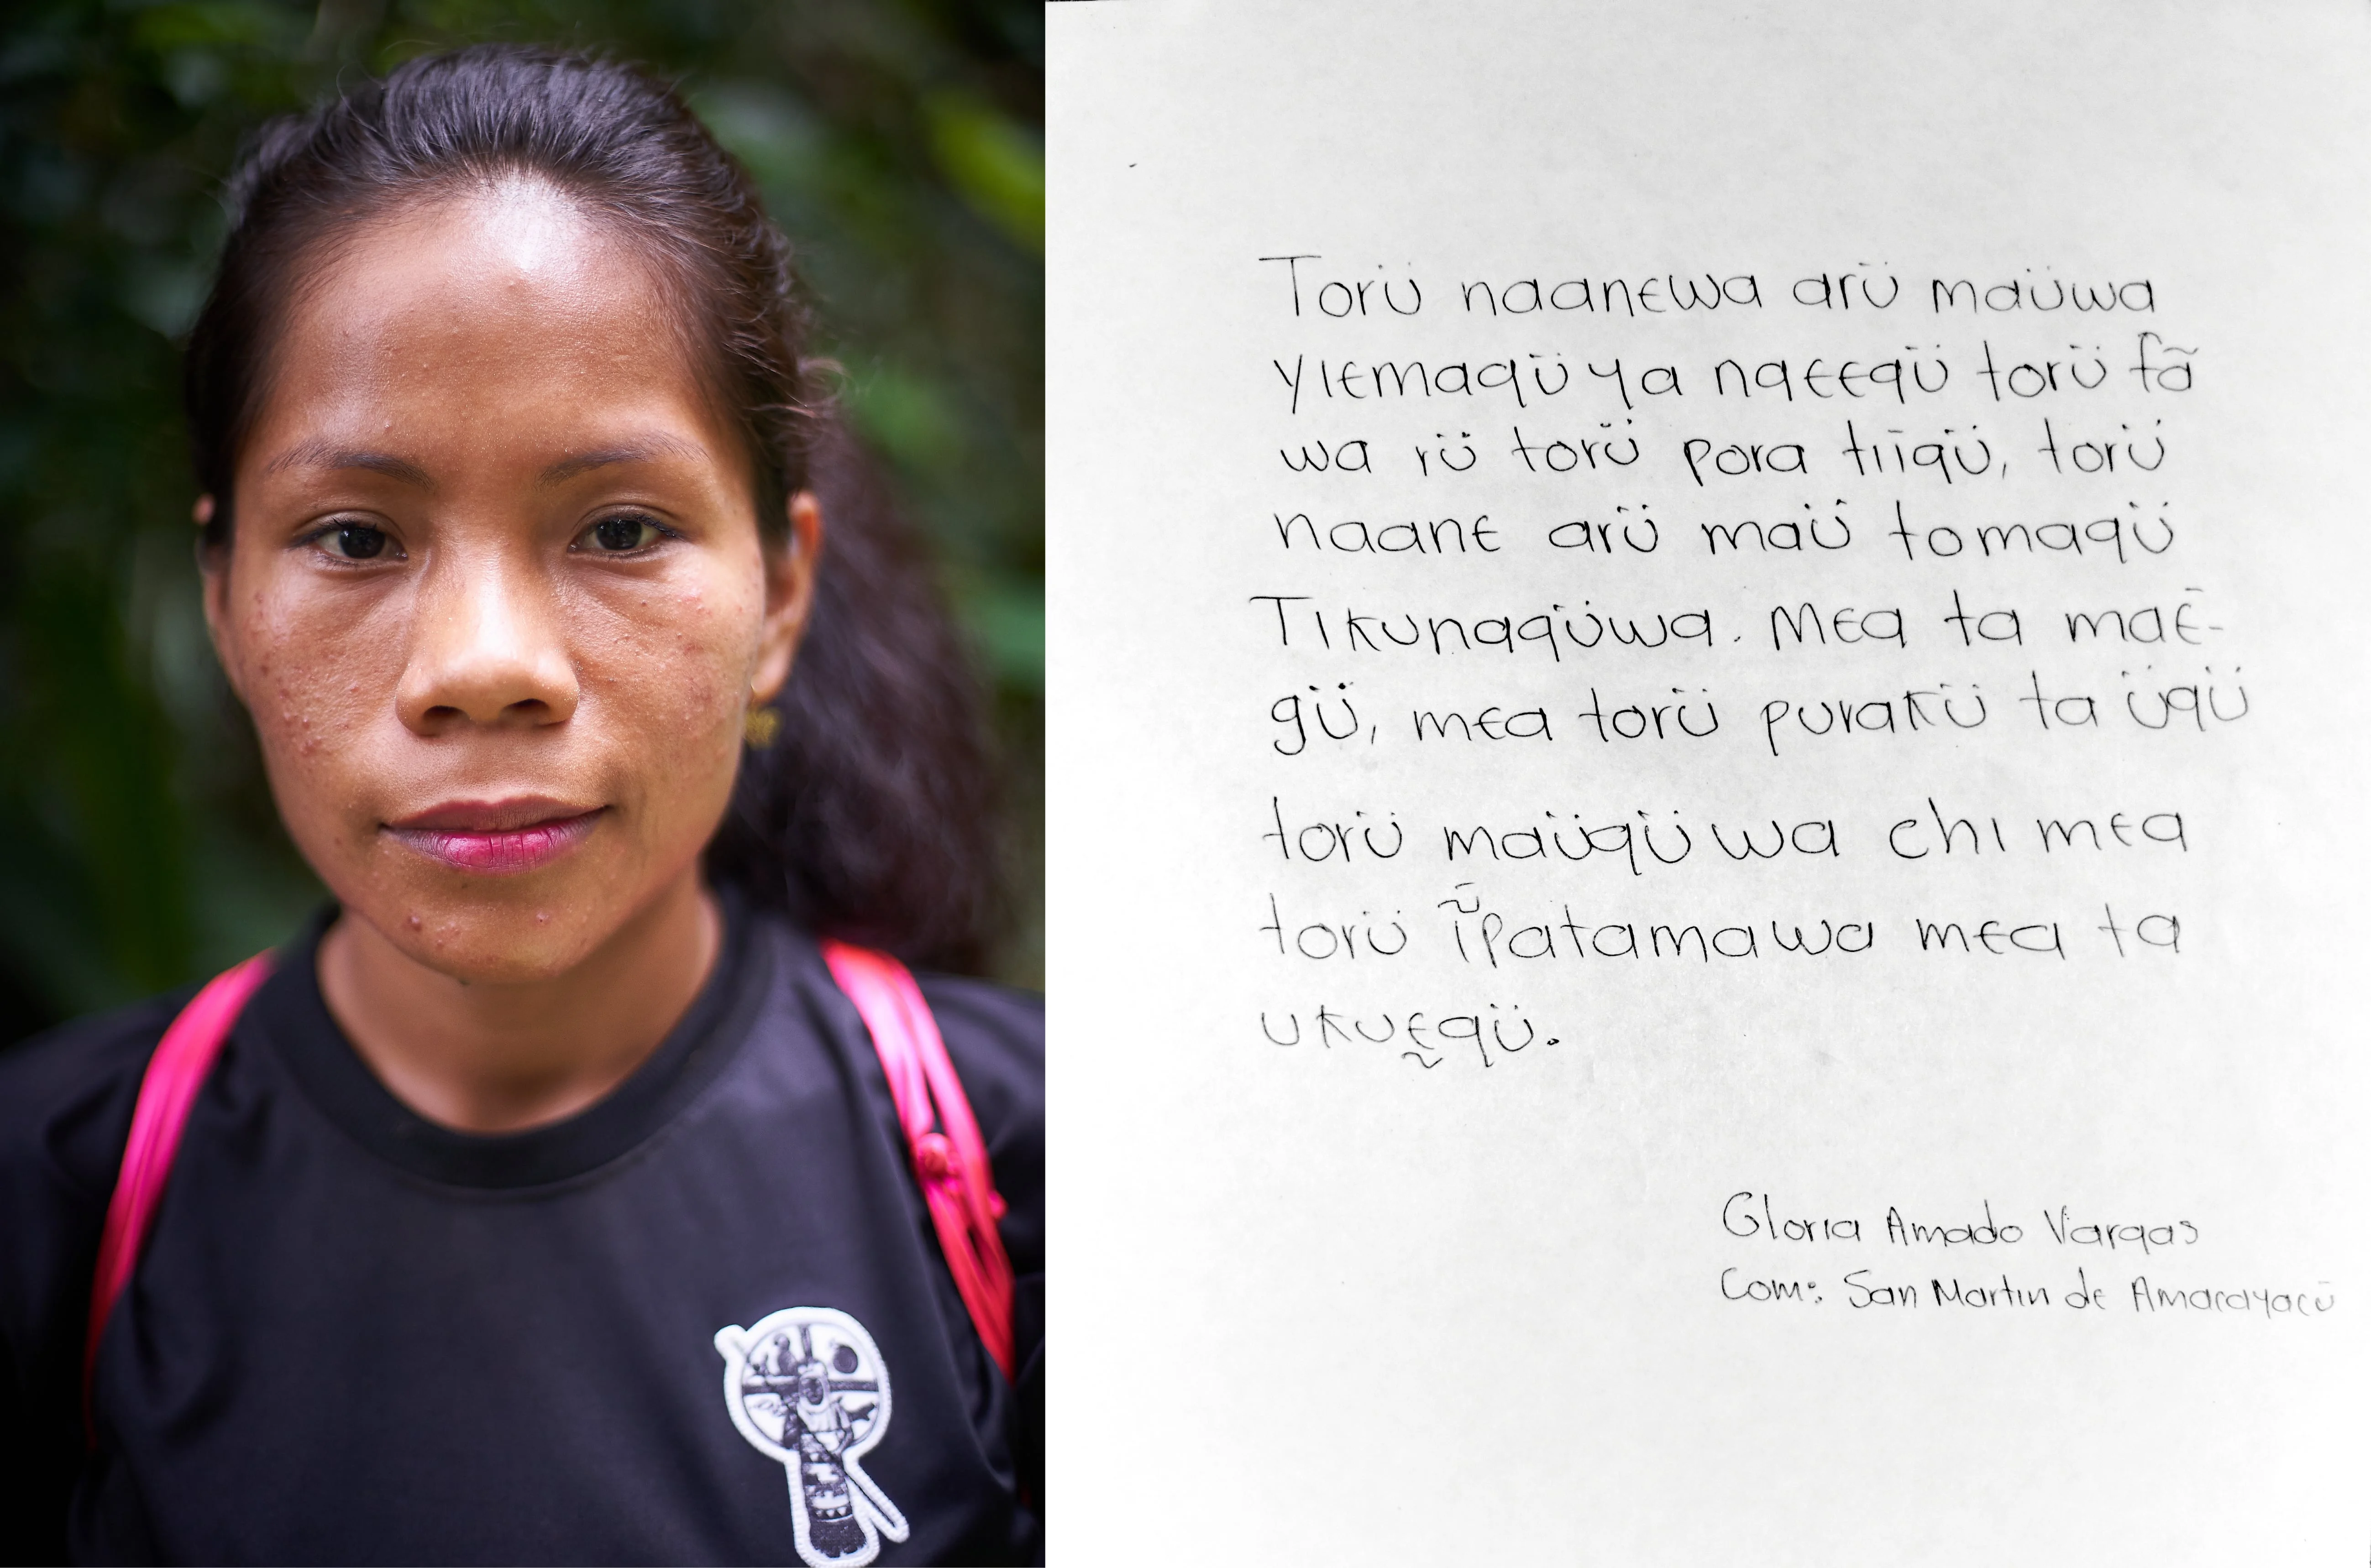 Torü naanewa arü maüwa
yiemaqü ya nqeeqü torü fã
wa rü torü pora tiīqü, torü
naane arü maü̂ tomaqü
Tikunaqüwa. Mea ta maē-
gü, mea torü purakü ta üqü
torü maüqüwa chi mea
torü ĩ̈patamawa mea ta
ukuḛqü.
Gloria Amado Vargas
Com: San Martin de Amacayacü